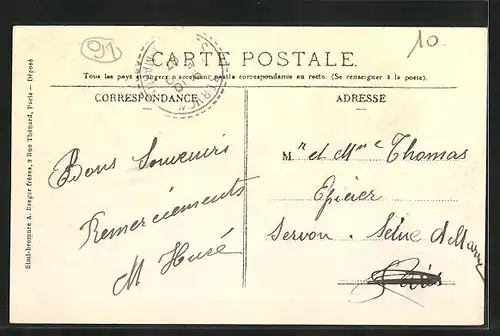 91
10
CARTE POSTALE.
Tous les pays étrangers n'acceptent pas la correspondance au recto. (Se renseigner à la poste).
CORRESPONDANCE
ADRESSE
Simi-bromure A. Breger frères, 9 Rue Thénard, Paris — Déposé
Bons Souvenirs
Remerciements
M Huré
Mr et Mme Thomas
Epicier
Servon. Seine & Marne
Paris